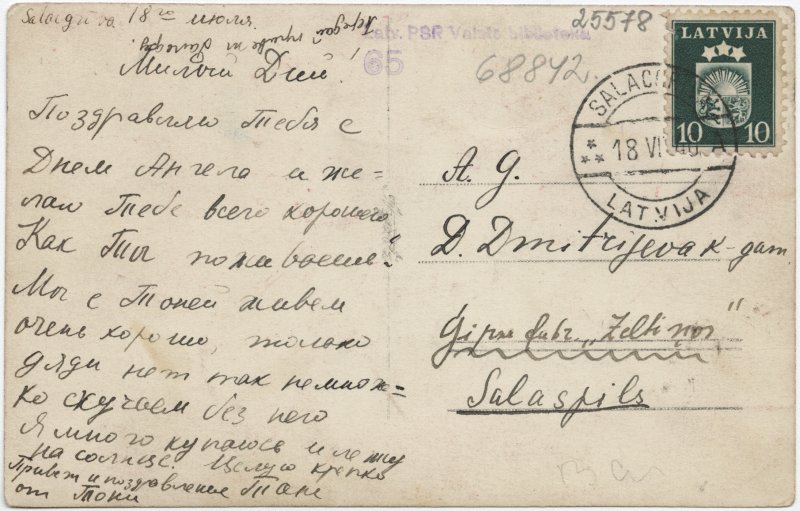 Salacgrīva 18го июля.
Передай привет и
Милый Дий!
Поздравляю Тебя с
Днем Ангела и же-
лаю Тебе всего хорошего
Как Ты поживаешь.
Мы с Тоней живем
очень хорошо, только
дяди нет так немнож=
ко скучаем без него
Я много купаюсь и лежу
на солнце. Целую крепко
Привет и поздравление Таня
от Тони
Latv. PSR Valsts bibliotēka
65
25578
68842.
LATVIJA
10 10
SALACG
18 VI 40 A
LATVIJA
A. G.
D. Dmitrijeva k-gam
Ģipša fabr. „Zeltiņos"
Salaspils